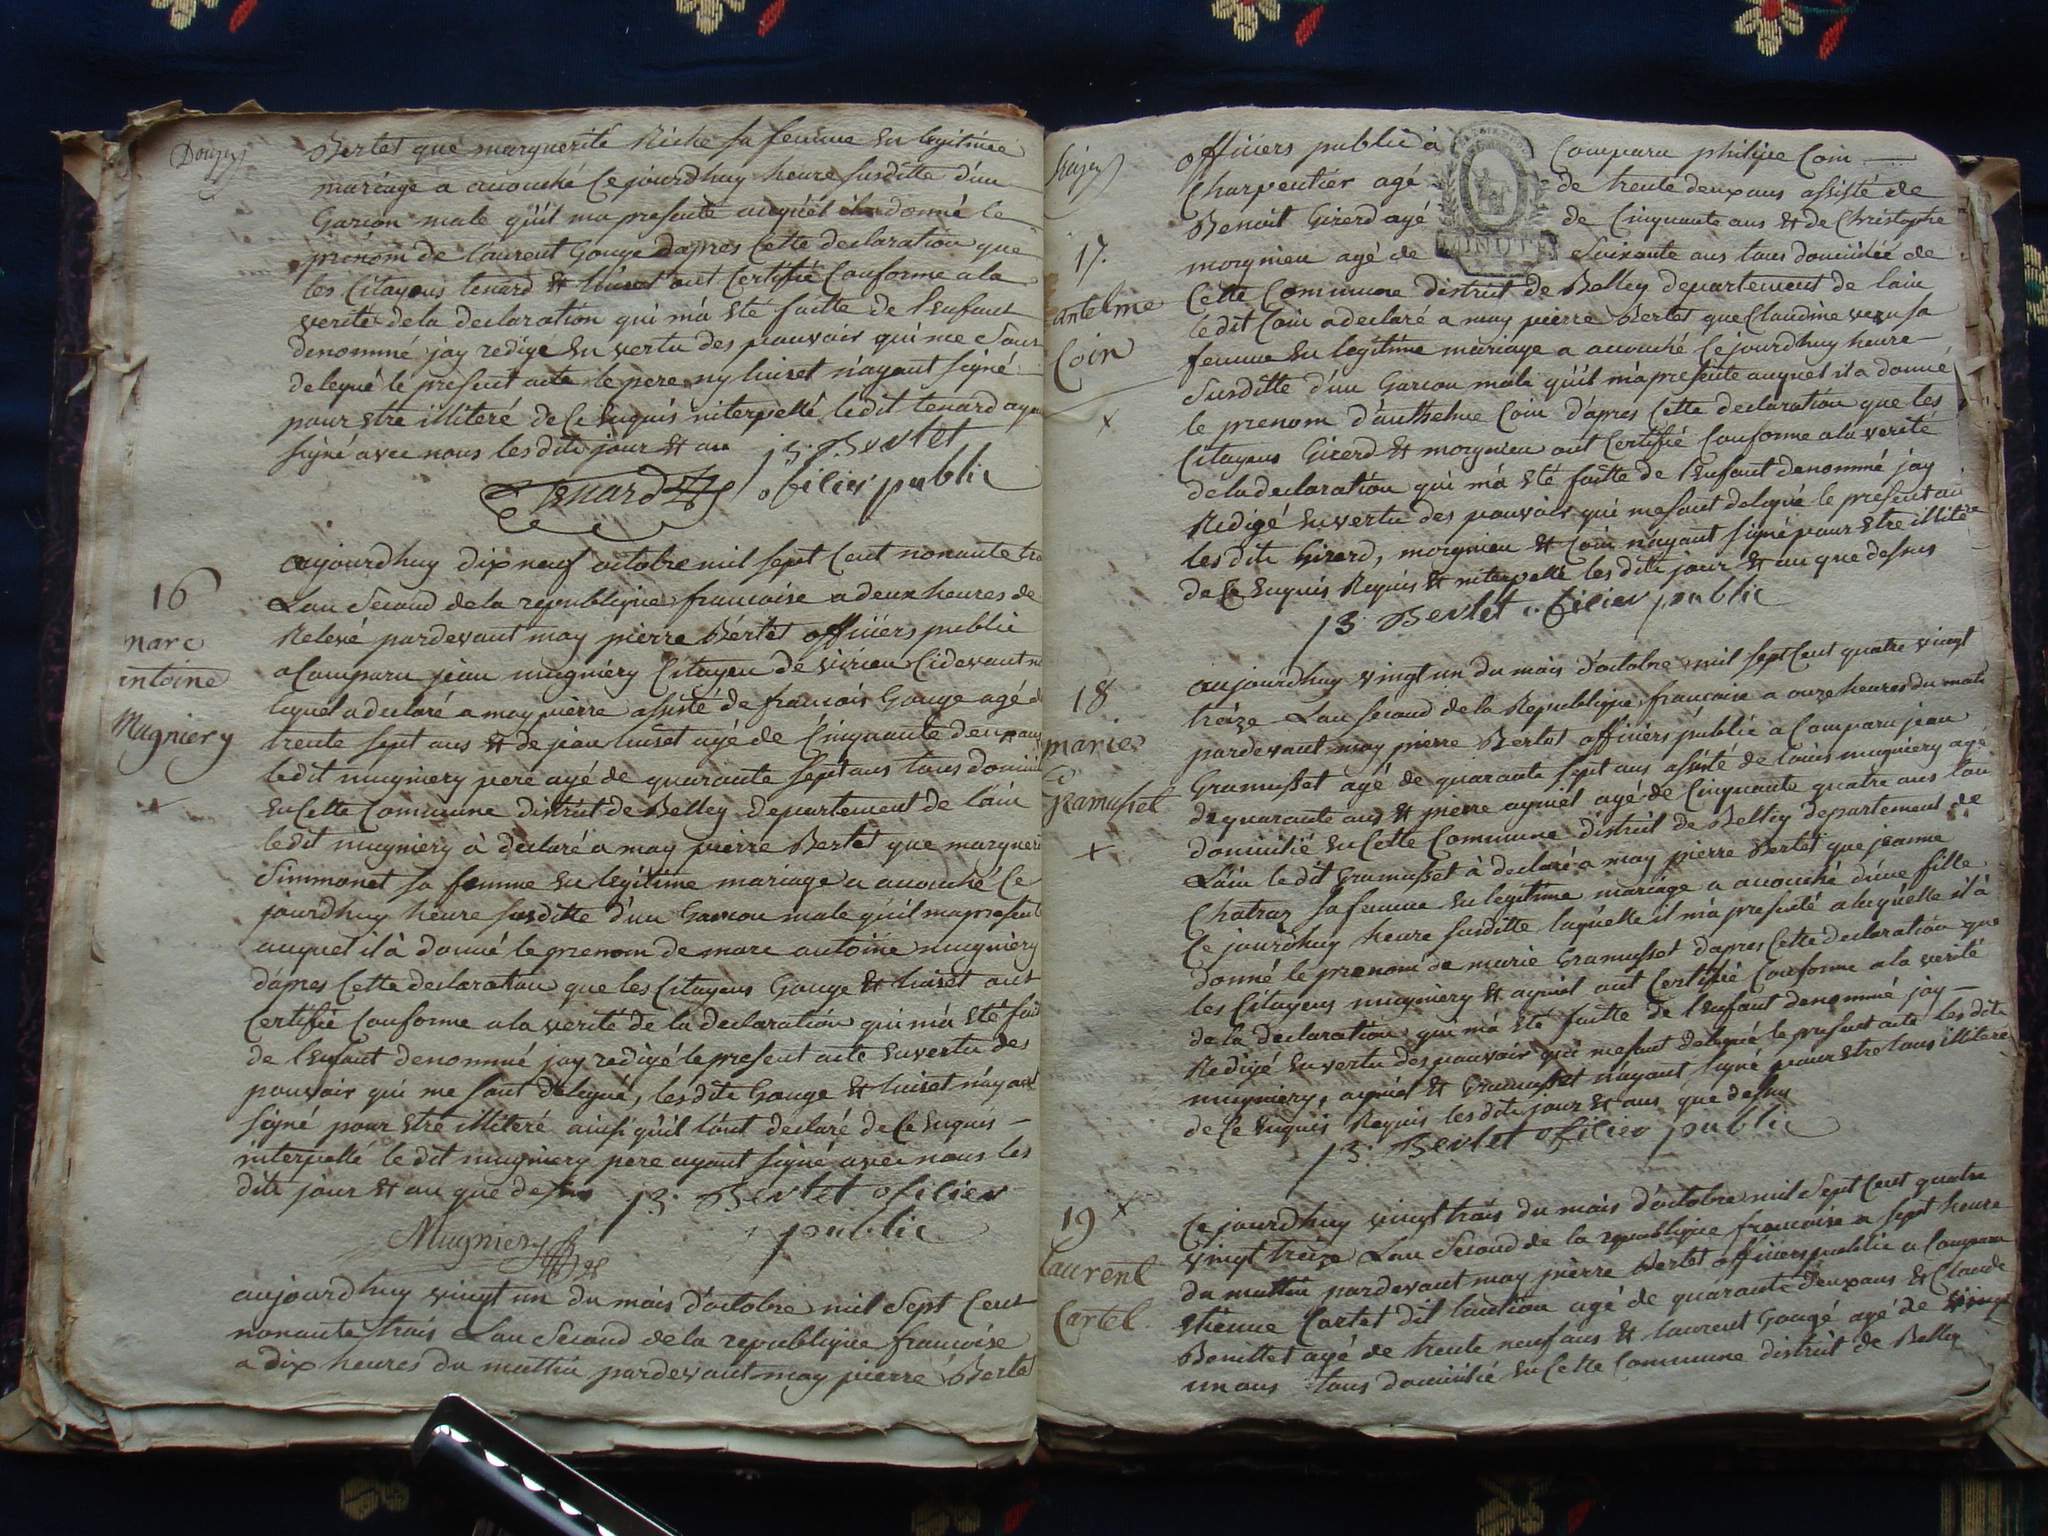 Douzey
Bertet que marguerite Riche sa femme en legitime
mariage a acouché Cejourdhuy heure susditte d'un
Garcon male qu'il ma presenté auquel il a donné le
prenom de laurent Gouge dapres Cette declaration que
les Citayens tenard & luiset ont Certifié Conforme a la
verité de la declaration qui m'a été faitte de l'enfant
denommé jay redigé en vertu des pouvoir qui me sont
delegué le present acte le pere ny luiset n'ayant signé
pour etre illiteré de Ce enquis interpellé ledit tenard ayant
signé avec nous les dits jour & an p. Bertet
Tenard oficier public
16
marc
antoine
Mugniery
aujourdhuy dix neuf octobre mil sept Cent nonante tro
Lan Second de la republique francoise a deux heures de
Relevé pardevant moy pierre Bertet officiers public
a Comparu jean mugniery Citayen de virieu Cidevant
lequel a declaré a moy pierre assisté de francois Gouge agé de
trente sept ans & de jean luiset agé de Cinquante deux ans
ledit mugniery pere agé de quarante sept ans tous domicilié
en Cette Commune district de Belley departement de lain
ledit mugniery à declaré a moy pierre Bertet que marguerite
Simmonet sa femme en legitime mariage a acouché Ce
jourdhuy heure susditte d'un Garcon male qu'il ma presenté
auquel il à donné le prenom de marc antoine mugniery
d'apres Cette declaration que les Citayens Gouge & luiset ont
Certifié Conforme a la verité de la declaration qui m'a été fait
de l'enfant denommé jay redigé le present acte en vertu des
pouvoir qui me sont delegué, les dit Gouge & luiset n'ayant
signé pour etre illiteré ainsi qu'il l'ont declaré de Ce enquis
interpellé le dit mugniery pere ayant signé avec nous les
dits jour & an que dessus p. Bertet oficier
Mugniery public
aujourdhuy vingt un du mois d'octobre mil Sept Cent
nonante trois Lan Second de la republique francoise
a dix heures du mattin pardevant moy pierre Bertet
17.
antelme
Coin
officiers public à Comparu philipe Coin
Charpentier agé de trente deux ans assisté de
Benoit Girerd agé de Cinquante ans & de Christophe
morgnieu agé de Soixante ans tous domicilié de
Cette Commune district de Belley departement de lain
le dit Coin a declaré a moy pierre Bertet que Claudine sa
femme en legitime mariage a acouché Cejourdhuy heure
Susditte d'un Garcon male qu'il m'a presenté auquel il a donné
le prenom d'anthelme Coin d'apres Cette declaration que les
Citayens Girerd & morgnieu ont Certifié Conforme a la verité
de la declaration qui m'a été faitte de l'enfant denommé jay
Redigé en vertu des pouvoir qui me sont delegué le present
les dits Girerd, morgnieu & Coin n'ayant signé pour etre illiteré
de Ce enquis Requis & interpellé les dits jour & an que dessus
p. Bertet oficier public
18
marie
Gramusset
aujourdhuy vingt un du mois d'octobre mil sept Cent quatre vingt
treize Lan second de la Republique francoise a onze heures du matin
pardevant moy pierre Bertet officiers public a Comparu jean
Gramusset agé de quarante sept ans assisté de louis mugniery agé
de quarante ans & pierre aymet agé de Cinquante quatre ans tous
domicilié en Cette Commune district de Belley departement de
Lain le dit Gramusset à declaré a moy pierre Bertet que jeanne
Chatray sa femme en legitime mariage a acouché d'une fille
Ce jourdhuy heure susditte laquelle il m'a presenté a laquelle il à
donné le prenom de marie Gramusset dapres Cette declaration que
les Citayens mugniery & aymet ont Certifié Conforme a la verité
de la declaration qui m'a été faitte de l'enfant denommé jay
Redigé en vertu des pouvoir qui me sont delegué le present acte les dits
mugniery, aymet & Gramusset n'ayant signé pour etre tous illiteré
de Ce enquis Requis les dits jour & ans que dessus
p. Bertet oficier public
19
laurent
Cartet
Ce jourdhuy vingt trois du mois d'octobre mil Sept Cent quatre
vingt treize Lan Second de la republique francoise a sept heure
du mattin pardevant moy pierre Bertet officiers public a Comparu
etienne Cartet dit agé de quarante deux ans & Claude
agé de trente neuf ans & laurent Gougé agé de vingt
un ans tous domicilié en Cette Commune district de Belley